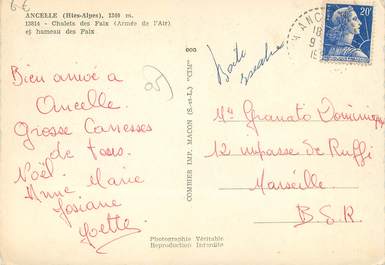 6€
ANCELLE (Htes-Alpes), 1340 m.
13814 - Chalets des Faix (Armée de l'Air)
et hameau des Faix
Bien arrivé à
Ancelle.
Grosse Caresses
de tous.
Noël.
Anne Marie
Josiane
Yvette
05
COMBIER IMP. MACON (S.-et-L.) "CIM"
Boîte
ANCELLE
18
9
20F
Granato Dominique
12 impasse de Ruffi
Marseille
B.D.R.
Photographie Véritable
Reproduction Interdite